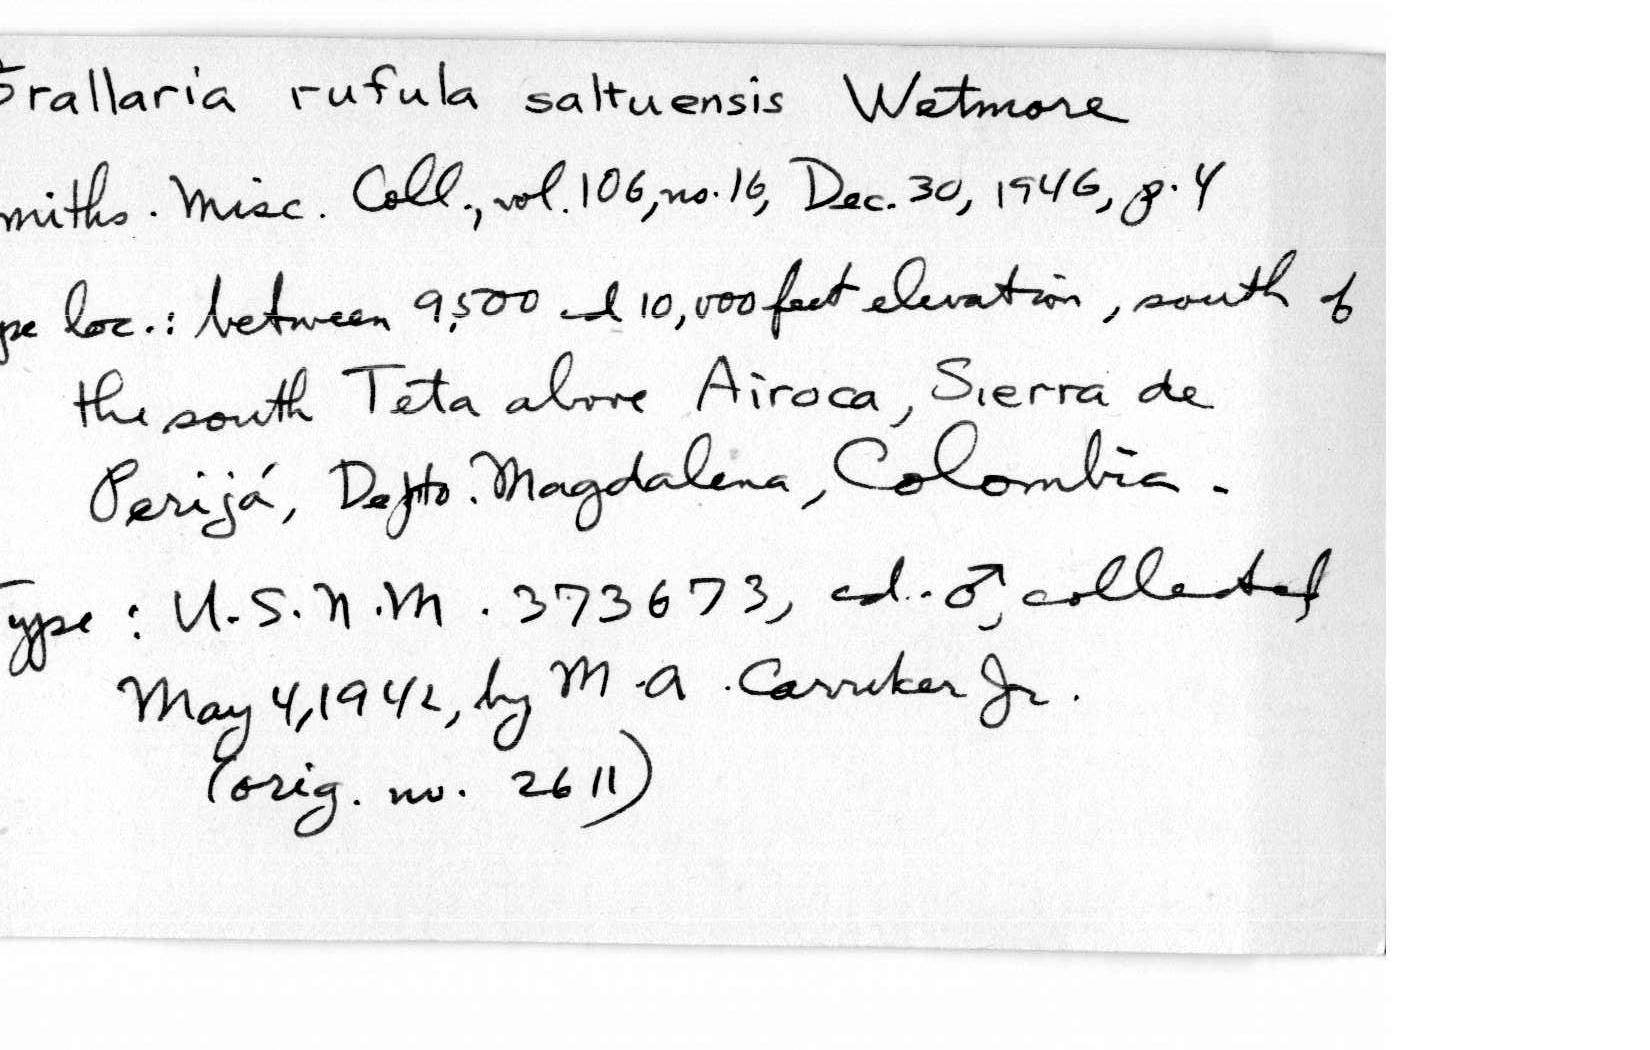 Grallaria rufula saltuensis Wetmore
miths. Misc. Coll., vol. 106, no. 16, Dec. 30, 1946, p. 4
pe loc.: between 9,500 and 10,000 feet elevation, south of
the south Teta above Airoca, Sierra de
Perijá, Depto. Magdalena, Colombia.
Type: U.S.N.M. 373673, ad. ♂, collected
May 4, 1942, by M.A. Carriker Jr.
(orig. no. 2611)